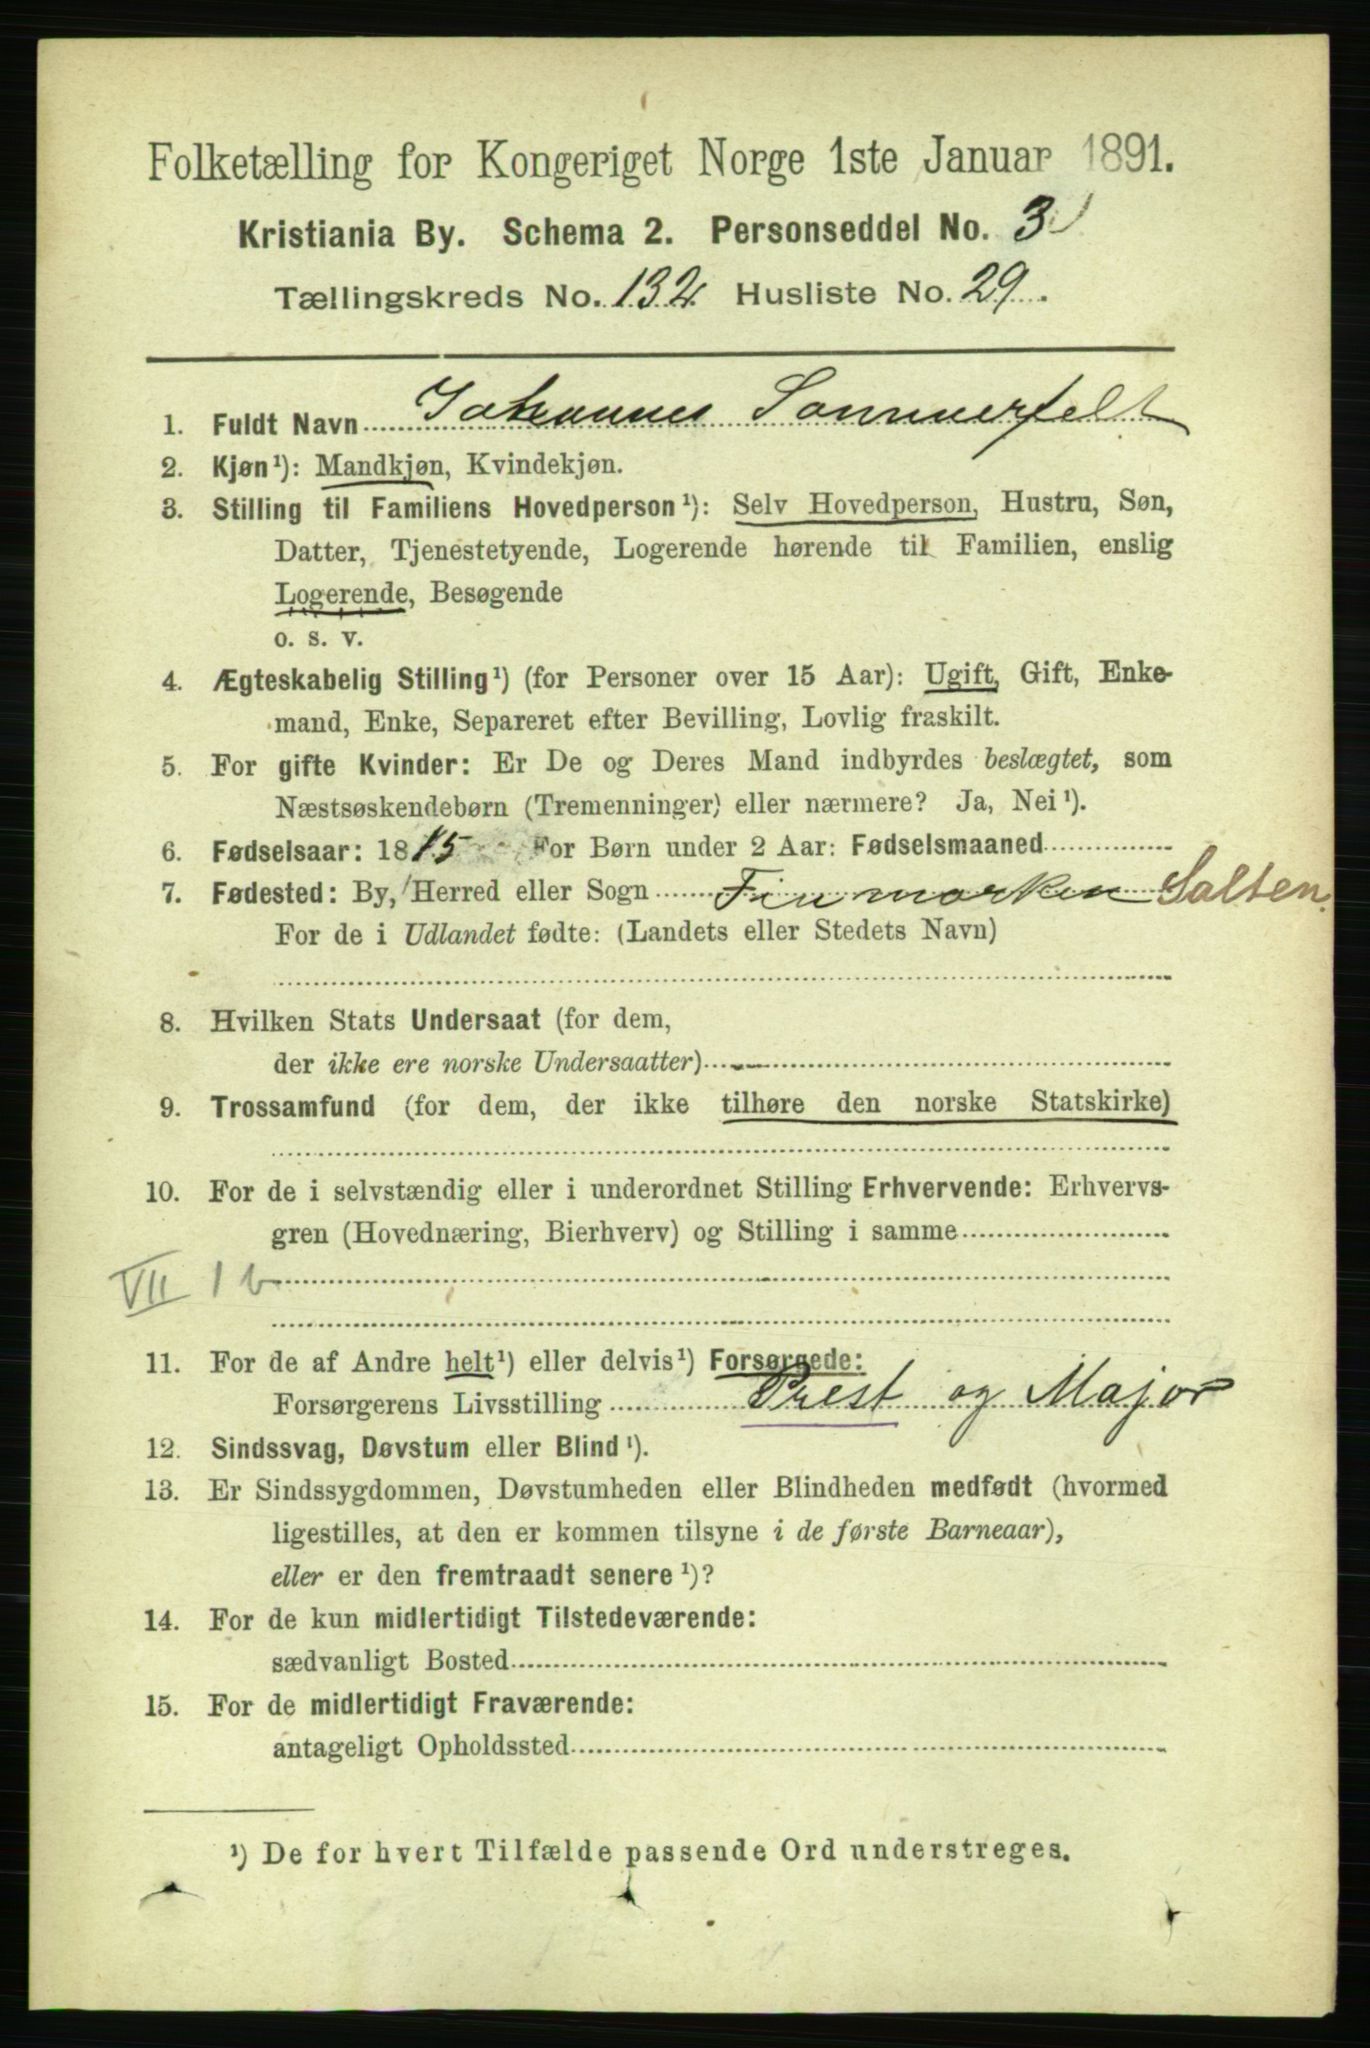 Folketælling for Kongeriget Norge 1ste Januar 1891.
Kristiania By. Schema 2. Personseddel No. 3
Tællingskreds No. 132 Husliste No. 29.
1. Fuldt Navn Johannes Sommerfelt
2. Kjøn¹): Mandkjøn, Kvindekjøn.
3. Stilling til Familiens Hovedperson¹): Selv Hovedperson, Hustru, Søn,
Datter, Tjenestetyende, Logerende hørende til Familien, enslig
Logerende, Besøgende
o. s. v.
4. Ægteskabelig Stilling¹) (for Personer over 15 Aar): Ugift, Gift, Enke-
mand, Enke, Separeret efter Bevilling, Lovlig fraskilt.
5. For gifte Kvinder: Er De og Deres Mand indbyrdes beslægtet, som
Næstsøskendebørn (Tremenninger) eller nærmere? Ja, Nei¹).
6. Fødselsaar: 1815 For Børn under 2 Aar: Fødselsmaaned
7. Fødested: By, Herred eller Sogn Finmarken Salten.
For de i Udlandet fødte: (Landets eller Stedets Navn)
8. Hvilken Stats Undersaat (for dem,
der ikke ere norske Undersaatter)
9. Trossamfund (for dem, der ikke tilhøre den norske Statskirke)
10. For de i selvstændig eller i underordnet Stilling Erhvervende: Erhvervs-
gren (Hovednæring, Bierhverv) og Stilling i samme
VII 1 b
11. For de af Andre helt¹) eller delvis¹) Forsørgede:
Forsørgerens Livsstilling Prest og Major
12. Sindssvag, Døvstum eller Blind¹).
13. Er Sindssygdommen, Døvstumheden eller Blindheden medfødt (hvormed
ligestilles, at den er kommen tilsyne i de første Barneaar),
eller er den fremtraadt senere¹)?
14. For de kun midlertidigt Tilstedeværende:
sædvanligt Bosted
15. For de midlertidigt Fraværende:
antageligt Opholdssted
¹) De for hvert Tilfælde passende Ord understreges.